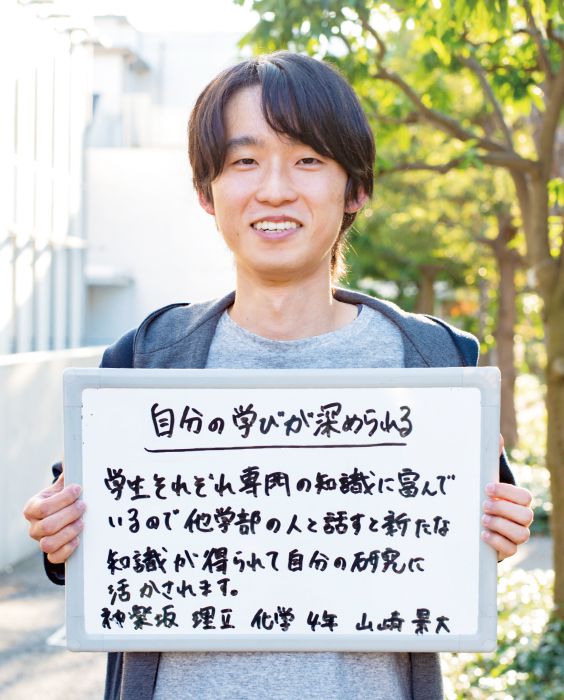 自分の学びが深められる
学生それぞれ専門の知識に富んで
いるので他学部の人と話すと新たな
知識が得られて自分の研究に
活かされます。
神楽坂 理Ⅱ 化学 4年 山崎 景大